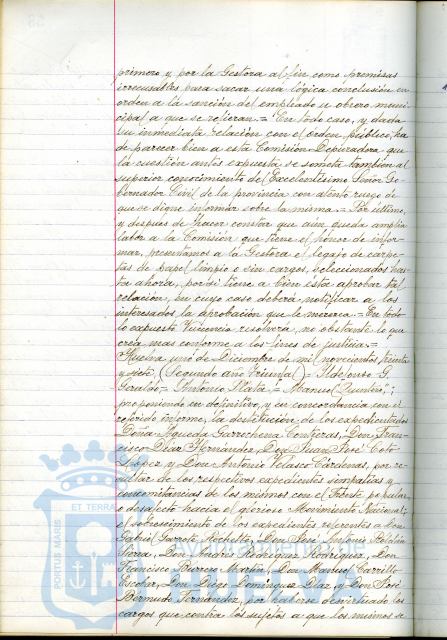 primero y por la Gestora al fin como premisas
irrecusables para sacar una lógica conclusión en
orden a la sanción del empleado u obrero muni-
cipal a que se refieran.= En todo caso, y dada
su inmediata relación con el orden público, ha
de parecer bien a esta Comisión Depuradora que
la cuestión antes expuesta se someta también al
superior conocimiento del Excelentísimo Señor Go-
bernador Civil de la provincia con atento ruego de
que se digne informar sobre la misma.= Por último,
y después de hacer constar que aún queda amplia
labor a la Comisión que tiene el honor de infor-
mar, presentamos a la Gestora el legajo de carpe-
tas de papel limpio o sin cargos, seleccionados has-
ta ahora, por si tiene a bien esta aprobar tal
relación, en cuyo caso deberá notificar a los
interesados la aprobación que le merezca.= En todo
lo expuesto Vuecencia resolverá, no obstante lo que
crea mas conforme a los fines de justicia.=
Huelva uno de Diciembre de mil novecientos treinta
y siete (Segundo año Triunfal)= Ildefonso G.
Geraldo= Antonio = Manuel
proponiendo en definitiva, y en concordancia con el
referido informe, la destitución de los expedientados
Doña Agueda Garrochena Contreras, Don Fran-
cisco Díaz Hernández, Don Juan José Coto
López y Don Antonio Velasco Cárdenas, por re-
sultar de los respectivos expedientes simpatías y
concomitancias de los mismos con el Frente popular
o desafecto hacia el glorioso Movimiento Nacional;
el sobreseimiento de los expedientes referentes a Don
Gabriel Garrote Don José Antonio
Sierra, Don Andrés Rodríguez Rodríguez, Don
Francisco Martín, Don Manuel Carrillo
Escobar, Don Diego Domínguez Díaz, y Don José
Bermudo Fernández, por haberse desvirtuado los
cargos que contra los sujetos a que los mismos se
PORTUS MARIS ET TERRAE
ayuntamiento de
HUELVA